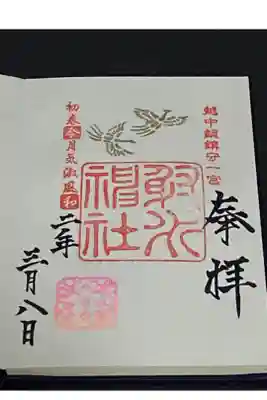 越中總鎮守一宮
奉拝
射水
神社
初春令月気淑風和
二年
三月八日